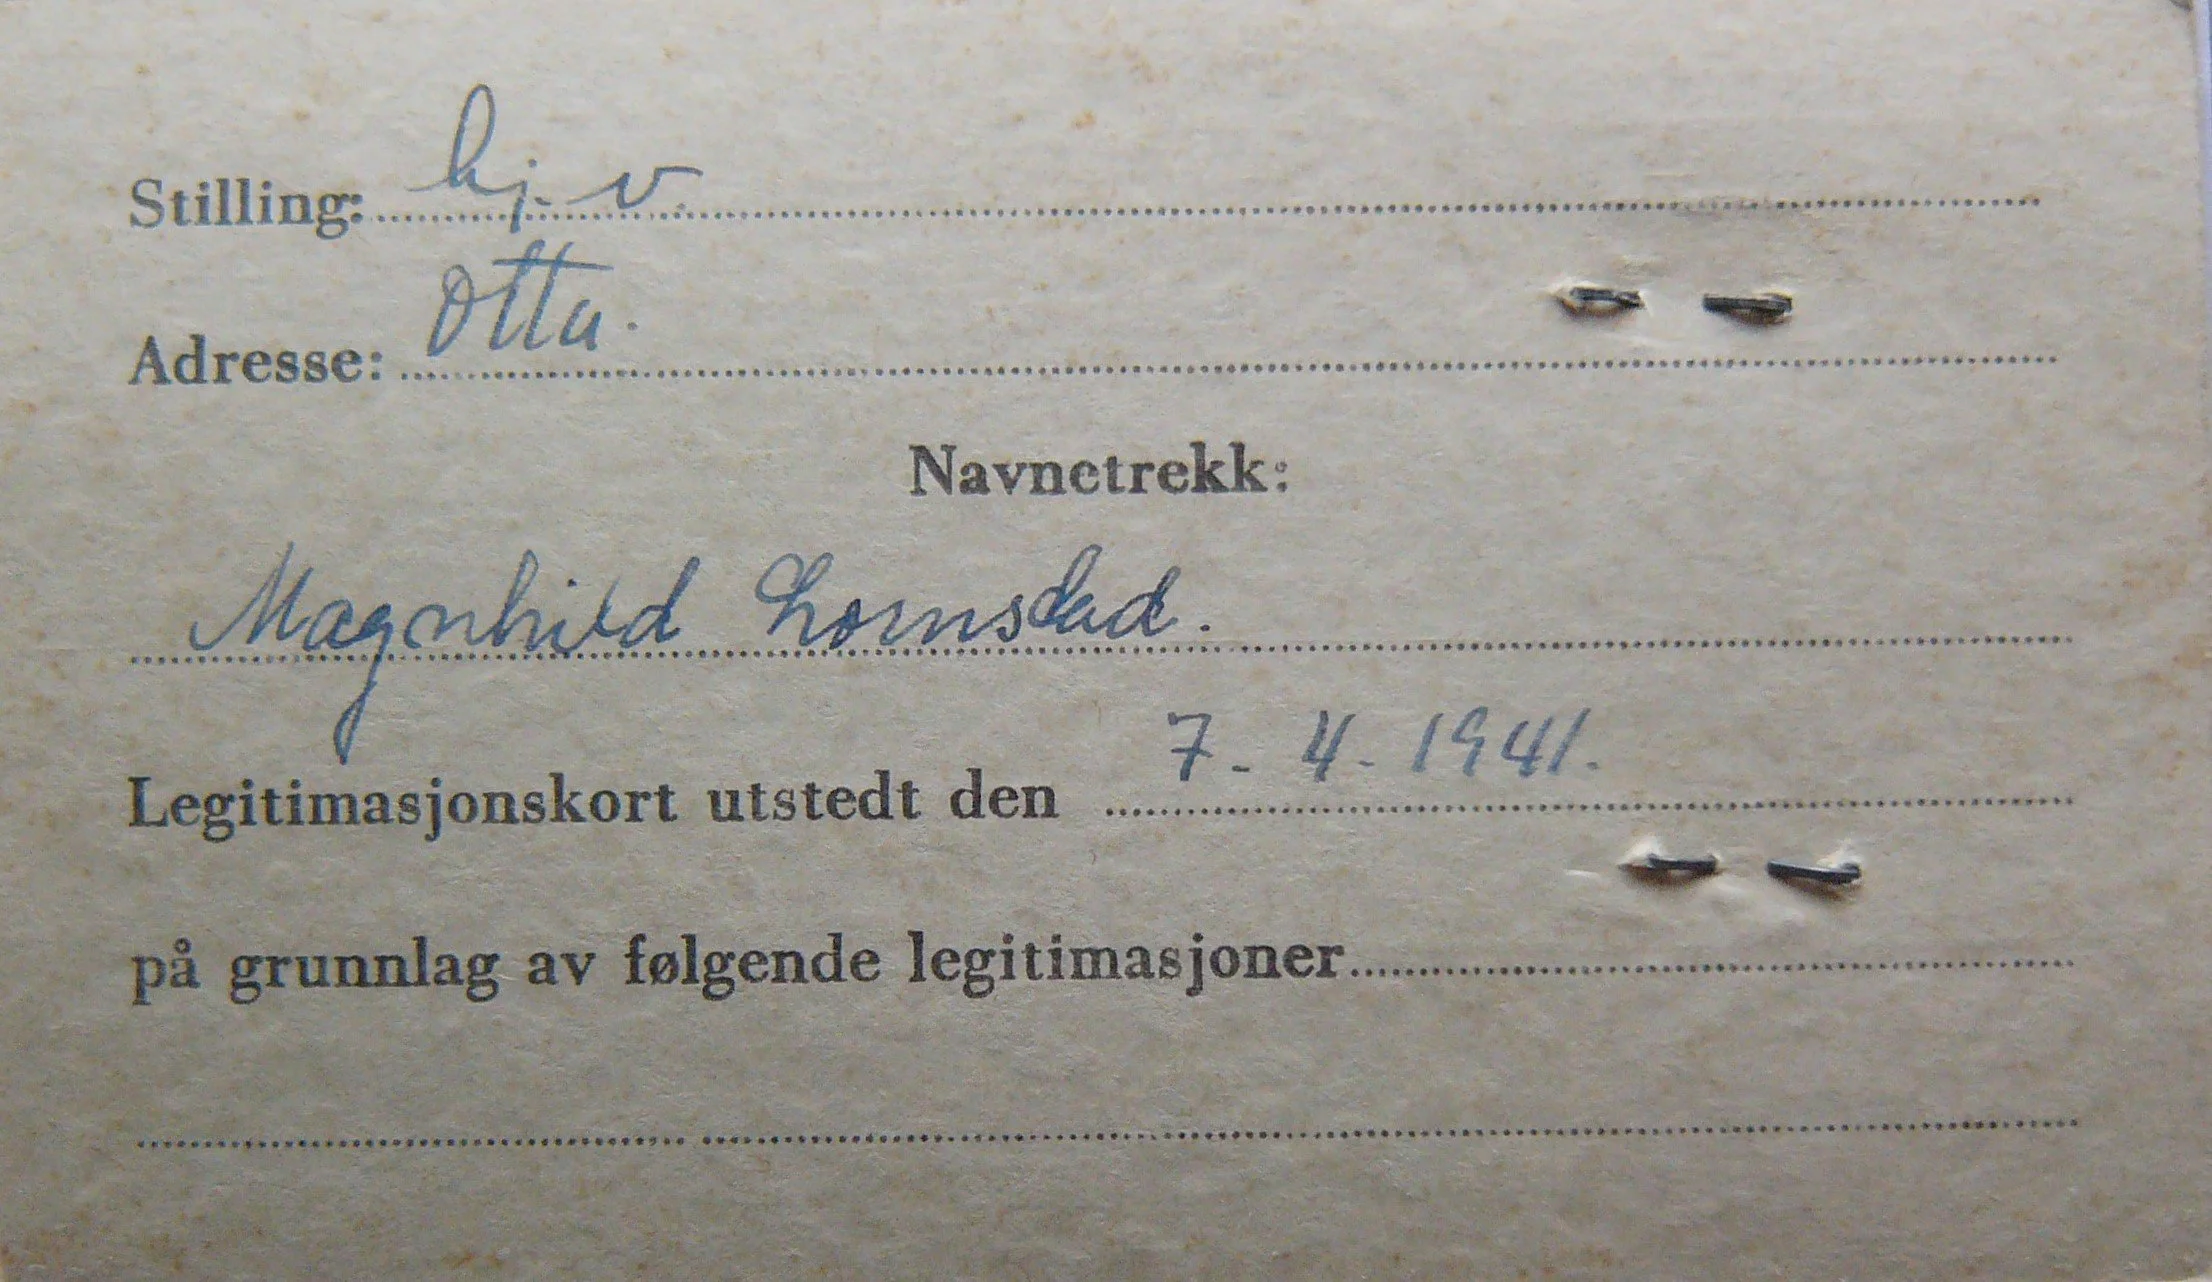 Stilling: hj. v.
Adresse: Otta.
Navnetrekk:
Magnhild Lomstad.
Legitimasjonskort utstedt den 7-4-1941.
på grunnlag av følgende legitimasjoner